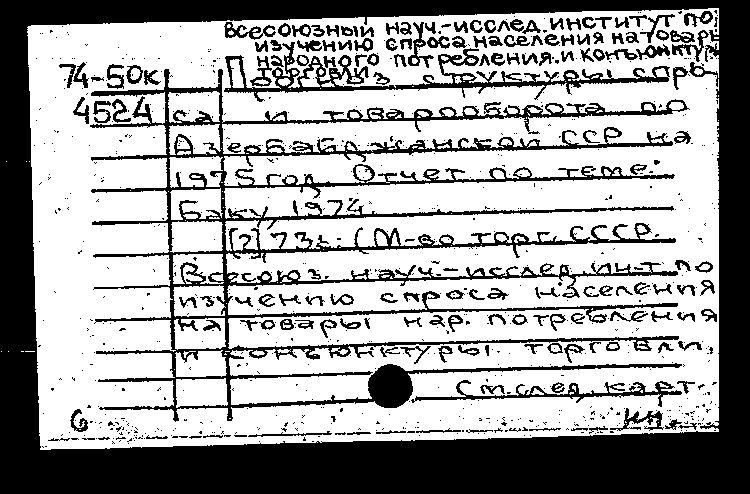 Всесоюзный науч.-исслед. институт по
изучению спроса населения на товары
народного потребления и конъюнктуры
торговли
74-50к Прогноз структуры спро-
4524 са и товарооборота по
Азербайджанской ССР на
1975 год. Отчет по теме.
Баку, 1974.
[2], 73 с.: (М-во торг. СССР.
Всесоюз. науч.-исслед. ин-т по
изучению спроса населения
на товары нар. потребления
и конъюнктуры торговли.
См. след. карт.
6 нн.